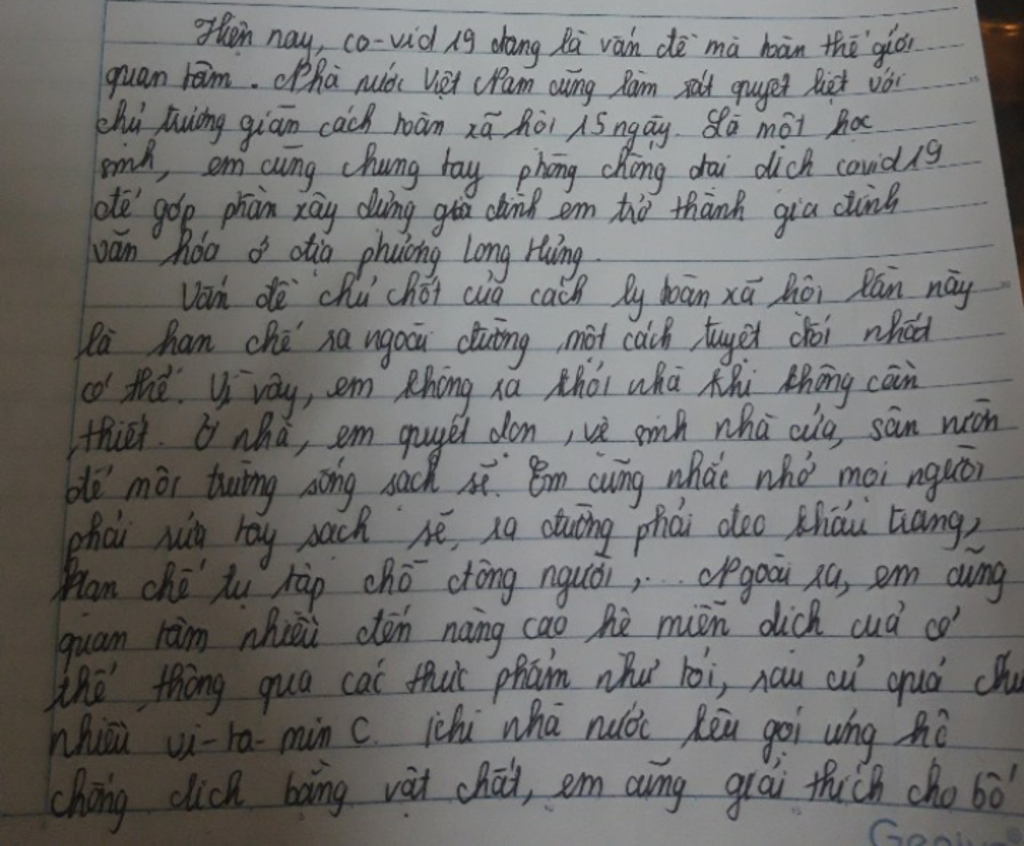 Hiện nay, co-vid 19 đang là vấn đề mà toàn thế giới
quan tâm. Nhà nước Việt Nam cũng làm rất quyết liệt với
chủ trương giãn cách toàn xã hội 15 ngày. Là một học
sinh, em cũng chung tay phòng chống đại dịch covid 19
để góp phần xây dựng gia đình em trở thành gia đình
văn hóa ở địa phương Long Hưng.
Vấn đề chủ chốt của cách ly toàn xã hội lần này
là hạn chế ra ngoài đường một cách tuyệt đối nhất
có thể. Vì vậy, em không ra khỏi nhà khi không cần
thiết. Ở nhà, em quyét dọn, vệ sinh nhà cửa, sân vườn
để môi trường sống sạch sẽ. Em cũng nhắc nhở mọi người
phải rửa tay sạch sẽ, ra đường phải đeo khẩu trang,
hạn chế tụ tập chỗ đông người,... Ngoài ra, em cũng
quan tâm nhiều đến nâng cao hệ miễn dịch của cơ
thể, thông qua các thực phẩm như tỏi, rau củ quả
nhiều vi-ta-min C. Khi nhà nước kêu gọi ủng hộ
chống dịch bằng vật chất, em cũng giải thích cho bố